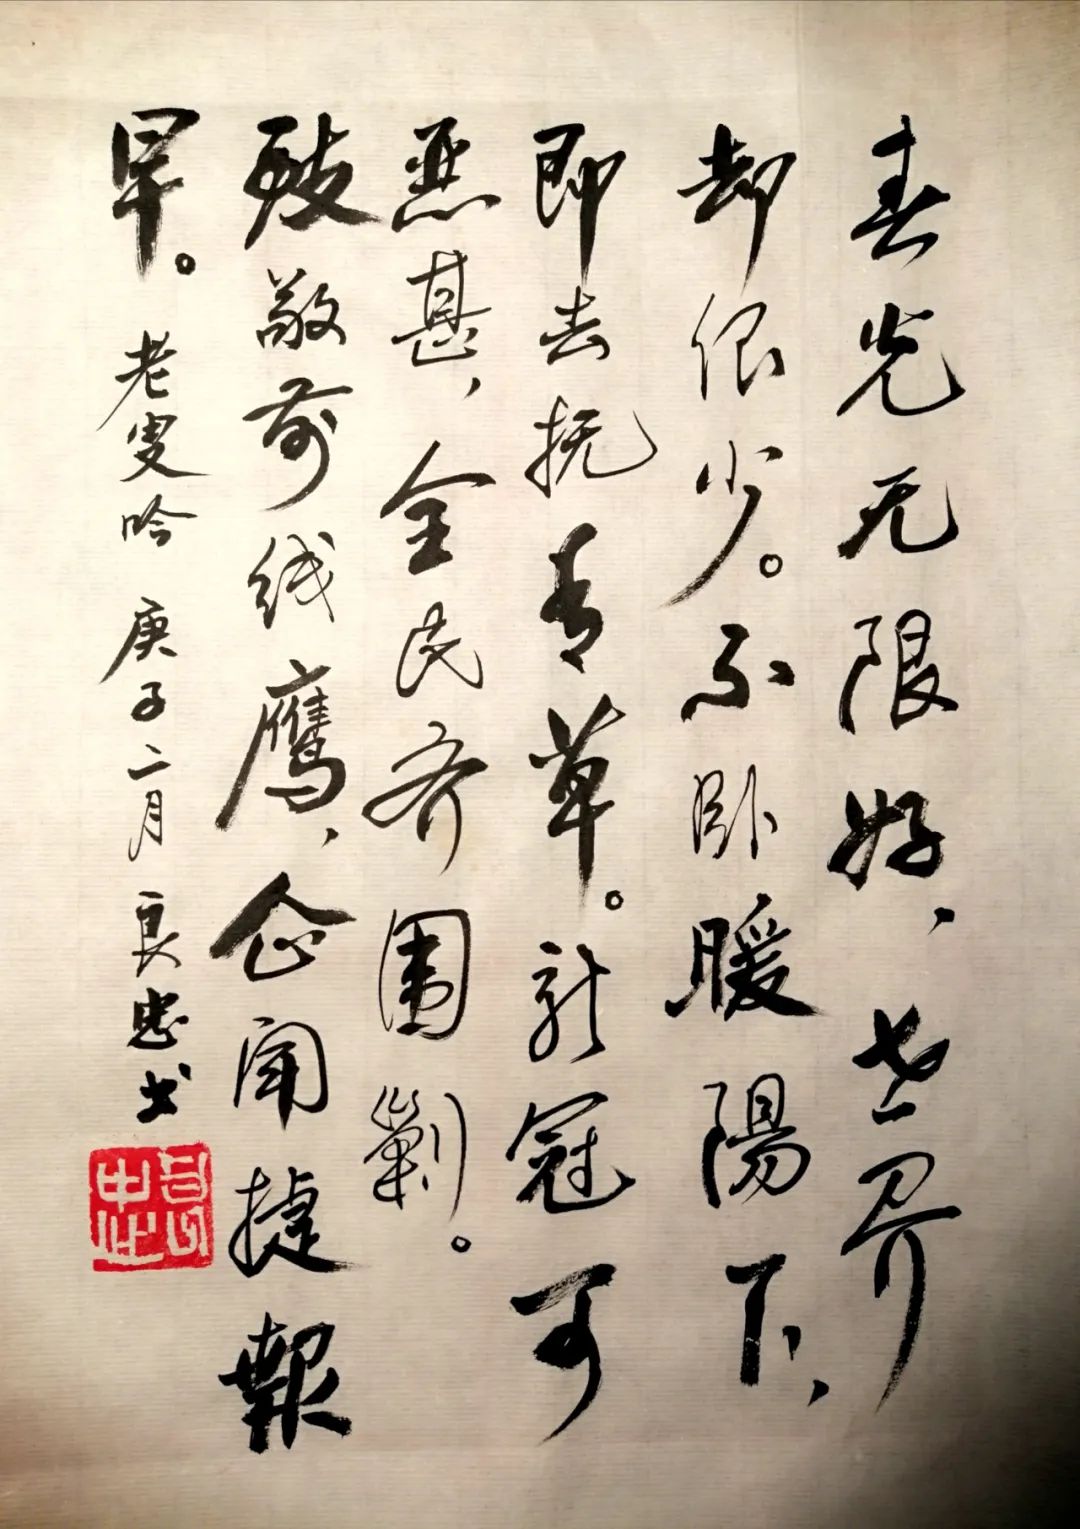 春光无限好，世界
却很少。不卧暖陽下，
即去抚青草。新冠可
恶甚，全民齐围剿。
致敬前线鹰，企闻捷報
早。老叟吟 庚子二月 良忠书